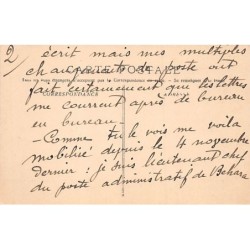 2/ écrit mais mes multiples
CARTE POSTALE
changements de poste ont
Tous les pays étrangers n'acceptent pas la Correspondance au recto.
fait certainement que les lettres
CORRESPONDANCE
me courrent après de bureau
en bureau -
- Comme tu le vois me voila
mobilisé depuis le 4 novembre
dernier : je suis lieutenant chef
du poste administratif de Behara